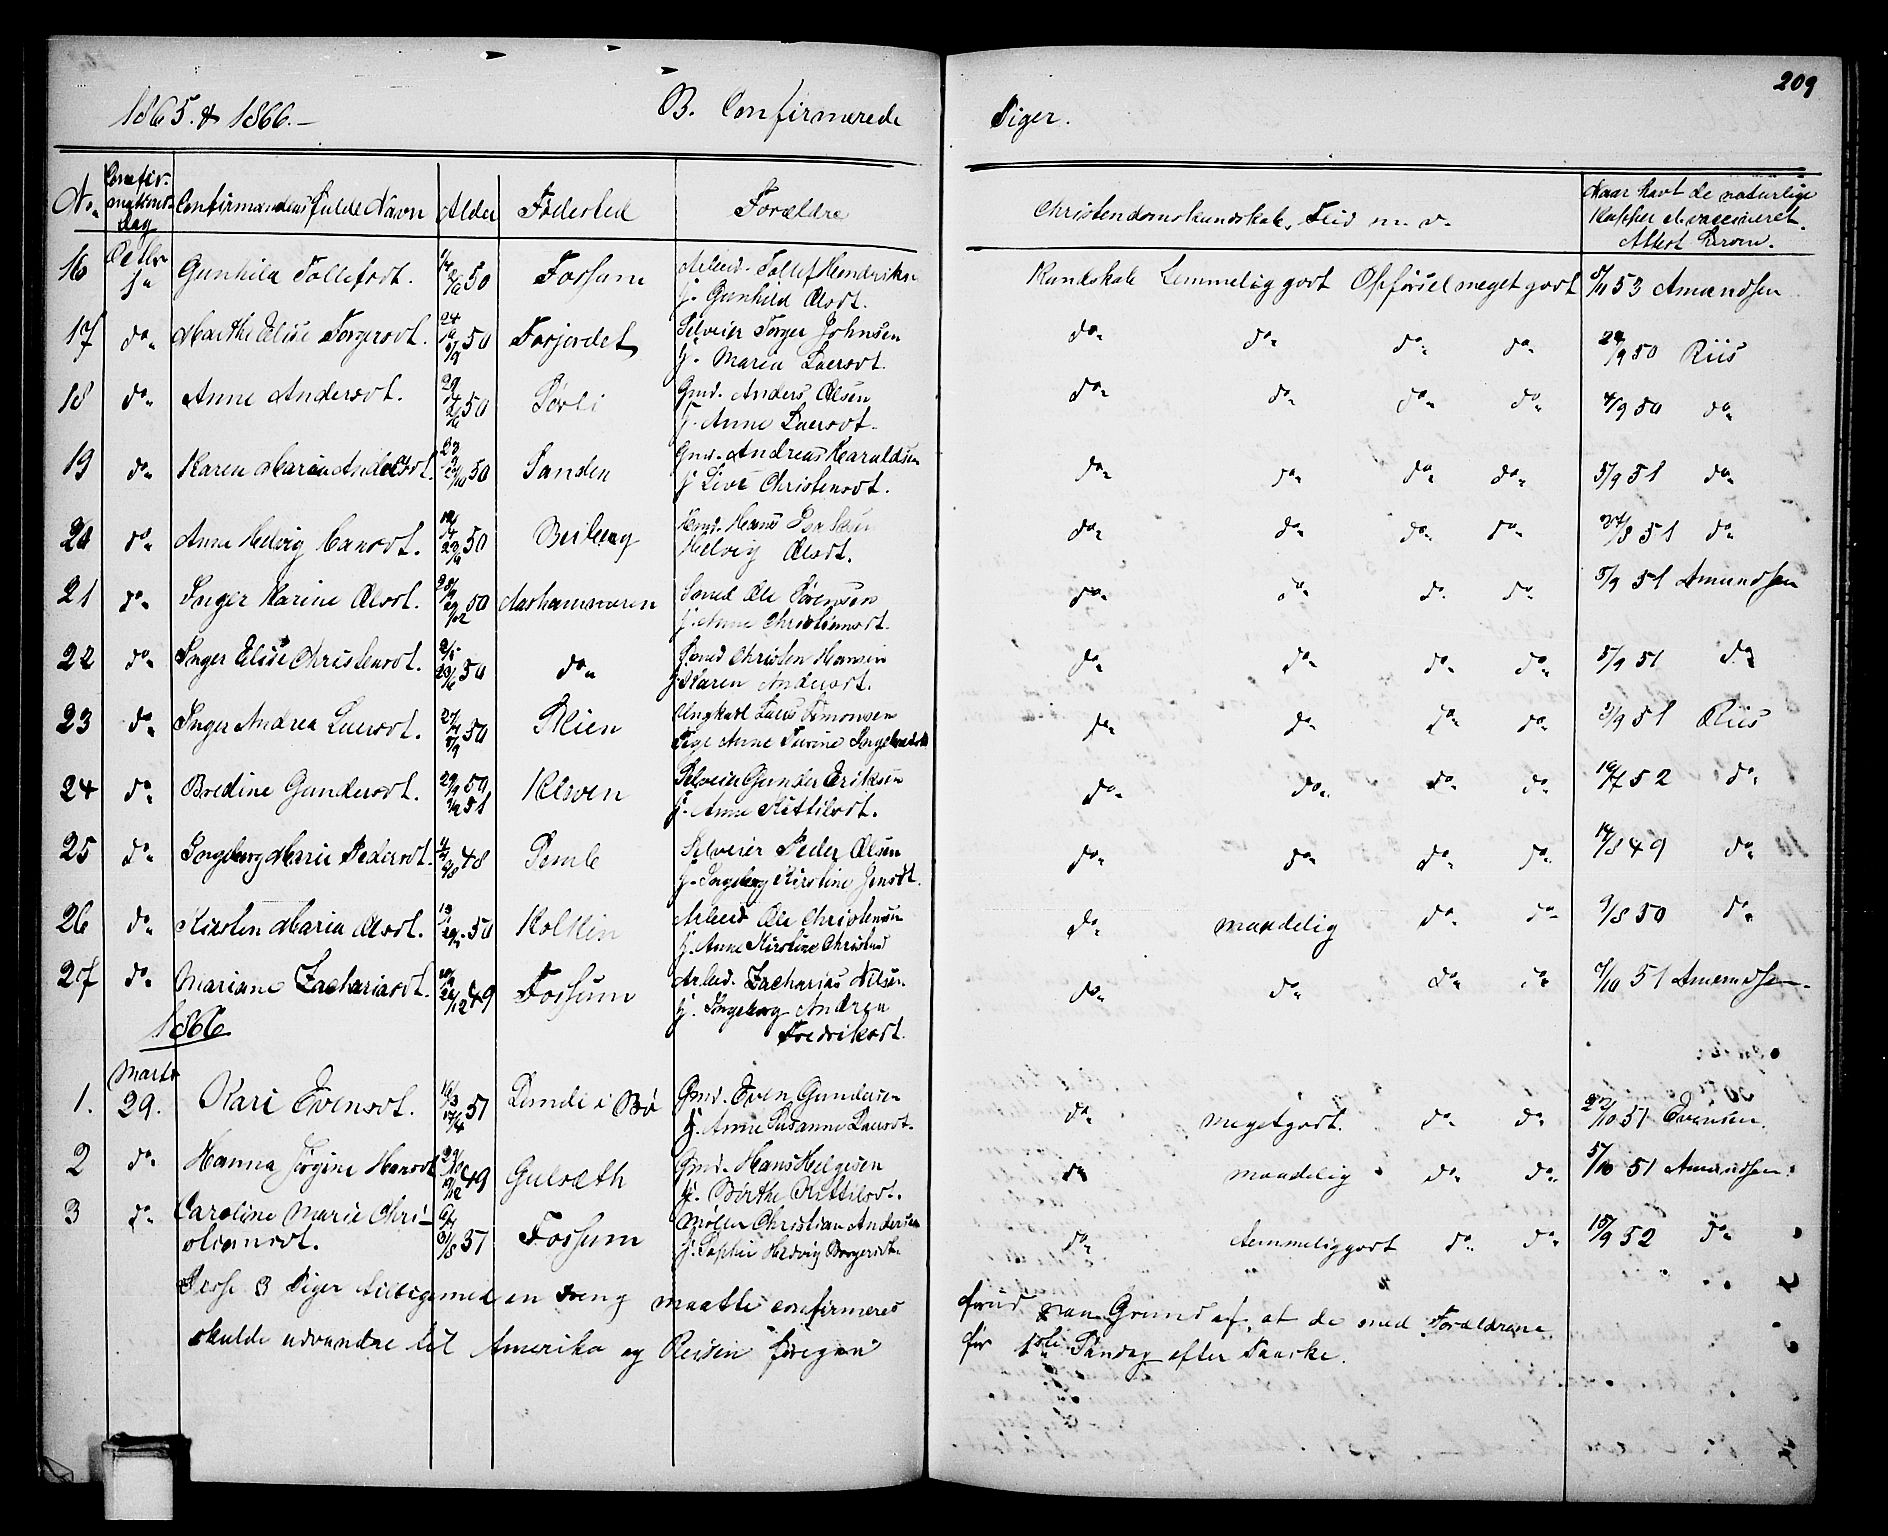 209
1865. & 1866.— B. Confirmerede Piger.
No. Confir-mations-Dag Confirmandens fulde Navn Alder Fødested Forældre Christendomskundskab, Flid m. v. Naar havt de naturlige Kopper el. vaccineret. Attest herom.
16 Octbr 1ste Gunhild Tollefsdt. 50 Fossum Arbeid. Tollef Hendriksn
G. Gunhild Olsdt. Kundskab temmelig godt Opførsel meget godt 53 Amundsen
17 do Marthe Elise Torgersdt. 24 50 Forjordet Selveier Torger Johnsen
G. Maria Larsdt. do do do do 24/9 50 Riis
18 do Anne Andersdt. 50 Sørli Gmd. Anders Olsen
G. Anne Larsdt. do do do do 4/9 50 do
19 do Karen Maria 50 Sanden Gmd. Andreas Haraldsen
G. Live Christensdt. do do do do 5/9 51 do
20 do Anne Helvig Hansdt. 50 Hmd. Hans
Helvig Olsdt. do do do do 27/8 51 do
21 do Inger Karine Olsdt. 50 Aashammeren Smed Ole Sørensen
G. Anne Christiansdt. do do do do 5/9 51 Amundsen
22 do Inger Elise Christensdt. 50 do Smed Christen Hansen
G. Karen Andersdt. do do do do 5/9 51 do
23 do Inger Andrea Larsdt. 50 Ungkarl Lars Simonsen
Pige Anne Turine do do do do 3/9 51 Riis
24 do Bredine Gundersdt. 50 51 Kleven Selveier Gunder Eriksen
G. Anne Kittilsdt. do do do do 19/7 52 do
25 do Ingeborg Marie Pedersdt. 48 Selveier Peder Olsen
G. Ingeborg Kirstine Jensdt. do do do do 14/8 49 do
26 do Kirsten Maria Olsdt. 50 Arbeid Ole Christensen
G. Anne Kirstine do maadelig do do 9/8 50 do
27 do Mariane Zachariasdt. 49 Fossum Arbeid. Zacharias Nilsen
G. Ingeborg Andrea
Fredriksdt. do do do do 7/10 51 Amundsen.
1866
1. Marts 29. Kari Evensdt. 16/3 17/4 51 Lunde i Bø Gmd. Even Gundersen
G. Anne Susanne Larsdt. do megetgodt. do do 22/10 51 Evensen.
2 do Hanna Jørgine Hansdt 49 Gulsæth Gmd. Hans Helgesen
G. Birthe Kittilsdt. do maadelig do do 5/10 51 Amundsen.
3 do Caroline Marie Chri-
stiansdt. 51 Fossum Møller Christian Andersen
G. Sophie Hedvig Borgersdt. do temmeliggodt do do 15/9 52 do
Disse 3 Piger tilligemed en Dreng maatte confirmeres forud paa Grund af, at de med Forældrene
skulde udvandre til Amerika og Reisen foregaa før 1ste Søndag efter Paaske.